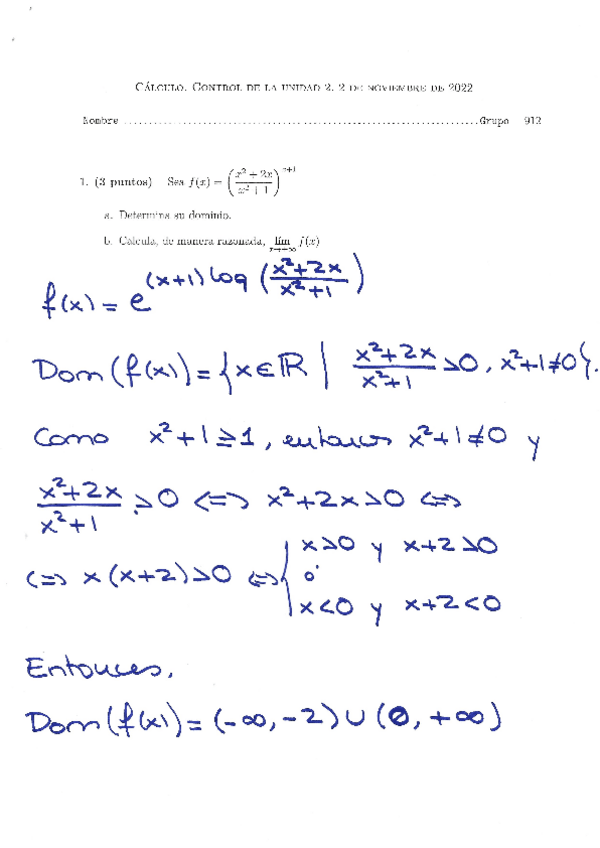 CÁLCULO. CONTROL DE LA UNIDAD 2. 2 DE NOVIEMBRE DE 2022
Nombre ........................................................................Grupo 912
1. (3 puntos) Sea f(x) = ((x² + 2x)/(x² + 1))^(x+1)
a. Determina su dominio.
b. Calcula, de manera razonada, lím x→+∞ f(x)
f(x) = e^((x+1) log ((x²+2x)/(x²+1)))
Dom(f(x)) = {x ∈ ℝ | (x²+2x)/(x²+1) > 0, x²+1 ≠ 0}.
Como x²+1 ≥ 1, entonces x²+1 ≠ 0 y
(x²+2x)/(x²+1) > 0 ⟺ x²+2x > 0 ⟺
⟺ x(x+2) > 0 ⟺ { x > 0 y x+2 > 0
ó
x < 0 y x+2 < 0
Entonces,
Dom(f(x)) = (-∞, -2) ∪ (0, +∞)